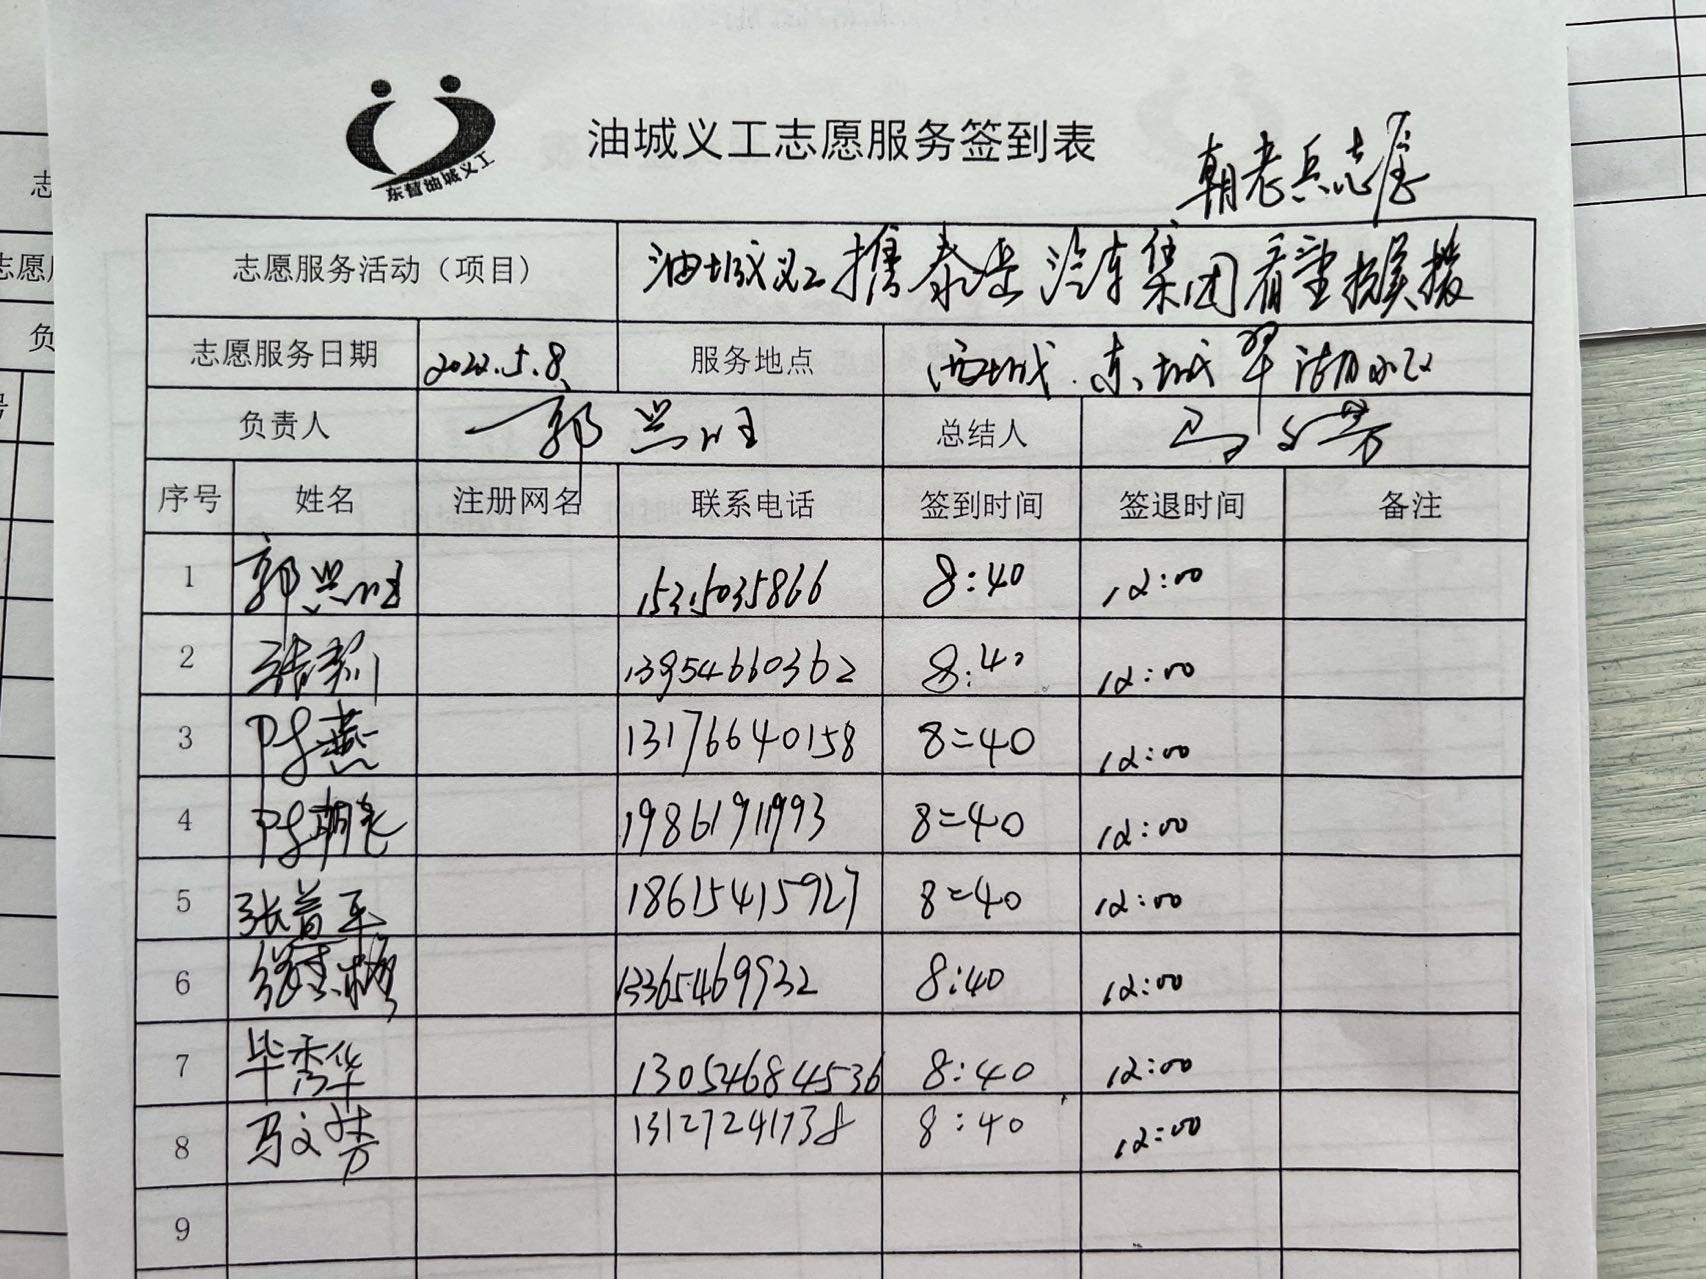 东营油城义工
油城义工志愿服务签到表
朝老兵志愿
志愿服务活动（项目） 油城义工携泰岳汽车集团看望抗美援
志愿服务日期 2022.5.8 服务地点 西城.东城翠湖小区
负责人 郭兴旺 总结人 马文芳
序号 姓名 注册网名 联系电话 签到时间 签退时间 备注
1 郭兴旺 8:40 12:00
2 13954660362 8:40 12:00
3 陈燕 13176640158 8:40 12:00
4 19861911993 8:40 12:00
5 张首平 18615415927 8:40 12:00
6 13365469932 8:40 12:00
7 毕秀华 13054684536 8:40 12:00
8 马文芳 13127241738 8:40 12:00
9